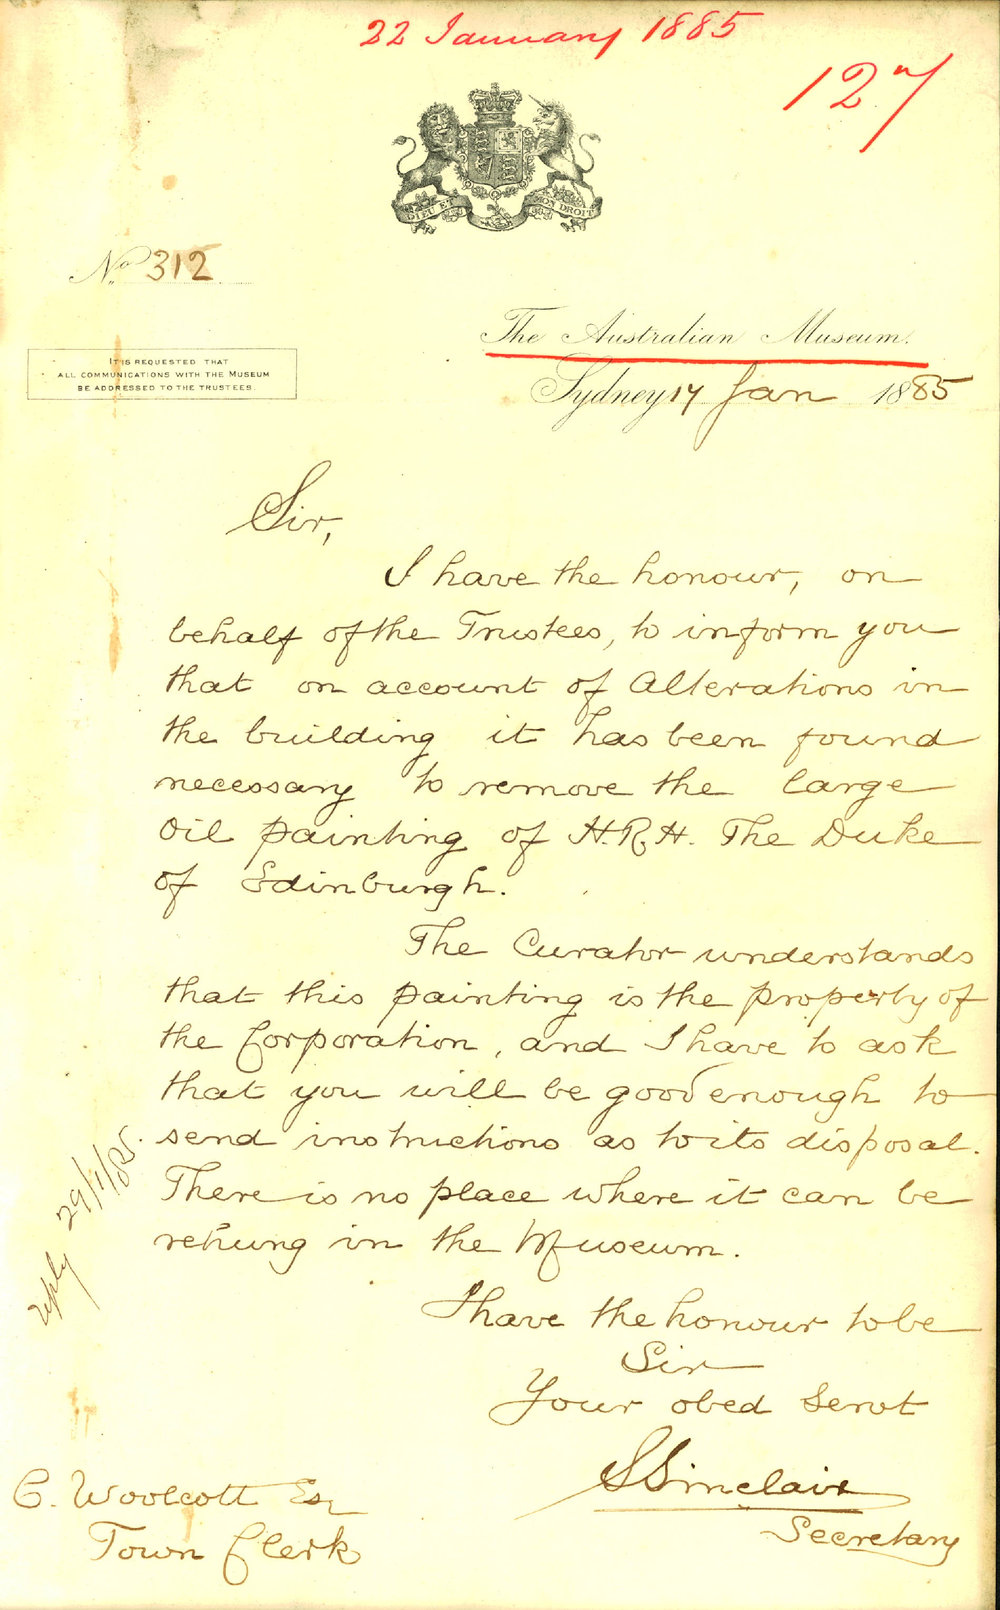 22 January 1885
127
DIEU ET MON DROIT
No 312
The Australian Museum.
IT IS REQUESTED THAT
ALL COMMUNICATIONS WITH THE MUSEUM
BE ADDRESSED TO THE TRUSTEES.
Sydney 17 Jan 1885
Sir,
I have the honour, on
behalf of the Trustees, to inform you
that on account of Alterations in
the building it has been found
necessary to remove the large
Oil painting of H.R.H. The Duke
of Edinburgh.
The Curator understands
that this painting is the property of
the Corporation, and I have to ask
that you will be good enough to
send instructions as to its disposal.
There is no place where it can be
rehung in the Museum.
reply 29/1/85.
I have the honour to be
Sir
Your obed Servt
S Sinclair
Secretary
C. Woolcott Esq
Town Clerk